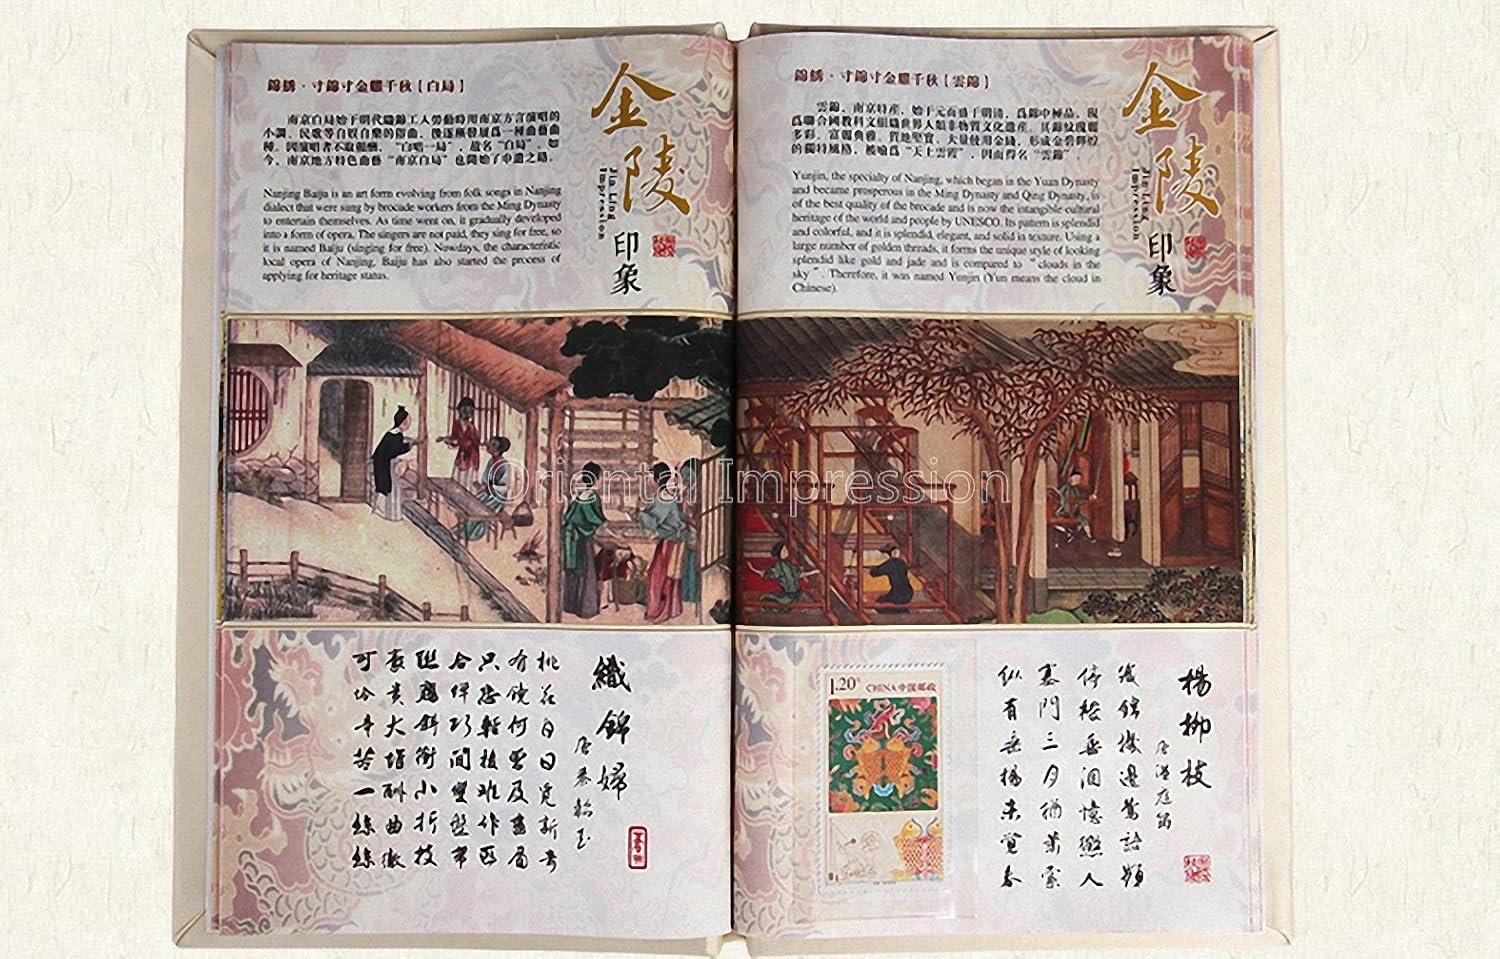 錦繡·寸錦寸金耀千秋【白局】
南京白局始于明代織錦工人勞動時用南京方言演唱的
小調、民歌等自娛自樂的俗曲，後逐漸發展爲一種曲藝曲
種。因演唱者不取報酬，“白唱一局”，故名“白局”。如
今，南京地方特色曲藝“南京白局”也開始了申遺之路。
Nanjing Baiju is an art form evolving from folk songs in Nanjing
dialect that were sung by brocade workers from the Ming Dynasty
to entertain themselves. As time went on, it gradually developed
into a form of opera. The singers are not paid, they sing for free, so
it is named Baiju (singing for free). Nowdays, the characteristic
local opera of Nanjing, Baiju has also started the process of
applying for heritage status.
金陵
Jin Ling
Impression
印象
錦繡·寸錦寸金耀千秋【雲錦】
雲錦，南京特産，始于元而盛于明清，爲錦中極品，現
爲聯合國教科文組織世界人類非物質文化遺産。其錦紋瑰麗
多彩，富麗典雅，質地堅實，大量使用金綫，形成金碧輝煌
的獨特風格，被喻爲“天上雲霞”，因而得名“雲錦”。
Yunjin, the specialty of Nanjing, which began in the Yuan Dynasty
and became prosperous in the Ming Dynasty and Qing Dynasty, is
of the best quality of the brocade and is now the intangible cultural
heritage of the world and people by UNESCO. Its pattern is splendid
and colorful, and it is splendid, elegant, and solid in texture. Using a
large number of golden threads, it forms the unique style of looking
splendid like gold and jade and is compared to “clouds in the
sky”. Therefore, it was named Yunjin (Yun means the cloud in
Chinese).
金陵
Jin Ling
Impression
印象
Oriental Impression
織錦婦
唐秦韜玉
桃花日日覓新奇
有鏡何曾及畫眉
只恐輕梭難作匹
合蟬巧間雙盤帶
聯雁斜銜小折枝
豪貴大堆酬曲徹
可憐辛苦一絲絲
1.20元
CHINA 中国邮政
楊柳枝
唐溫庭筠
織錦機邊鶯語頻
停梭垂淚憶征人
塞門三月猶蕭索
縱有垂楊未覺春